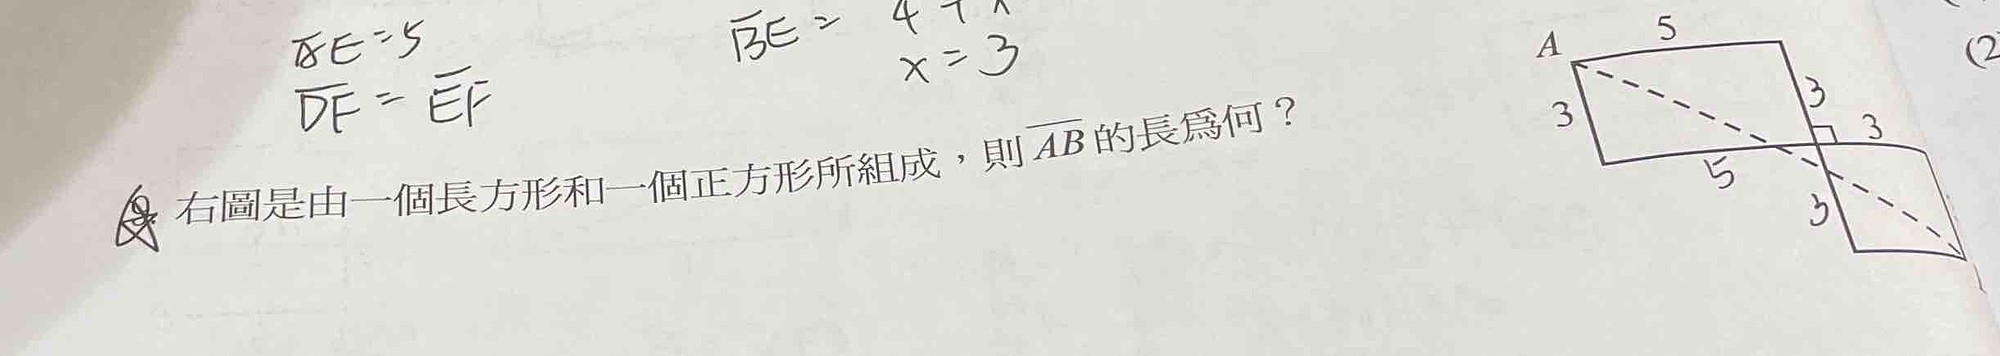 AE=5
BE= 4+x
x=3
DF = EF
右圖是由一個長方形和一個正方形所組成，則 AB 的長為何？
A
5
3
3
3
5
3
(2